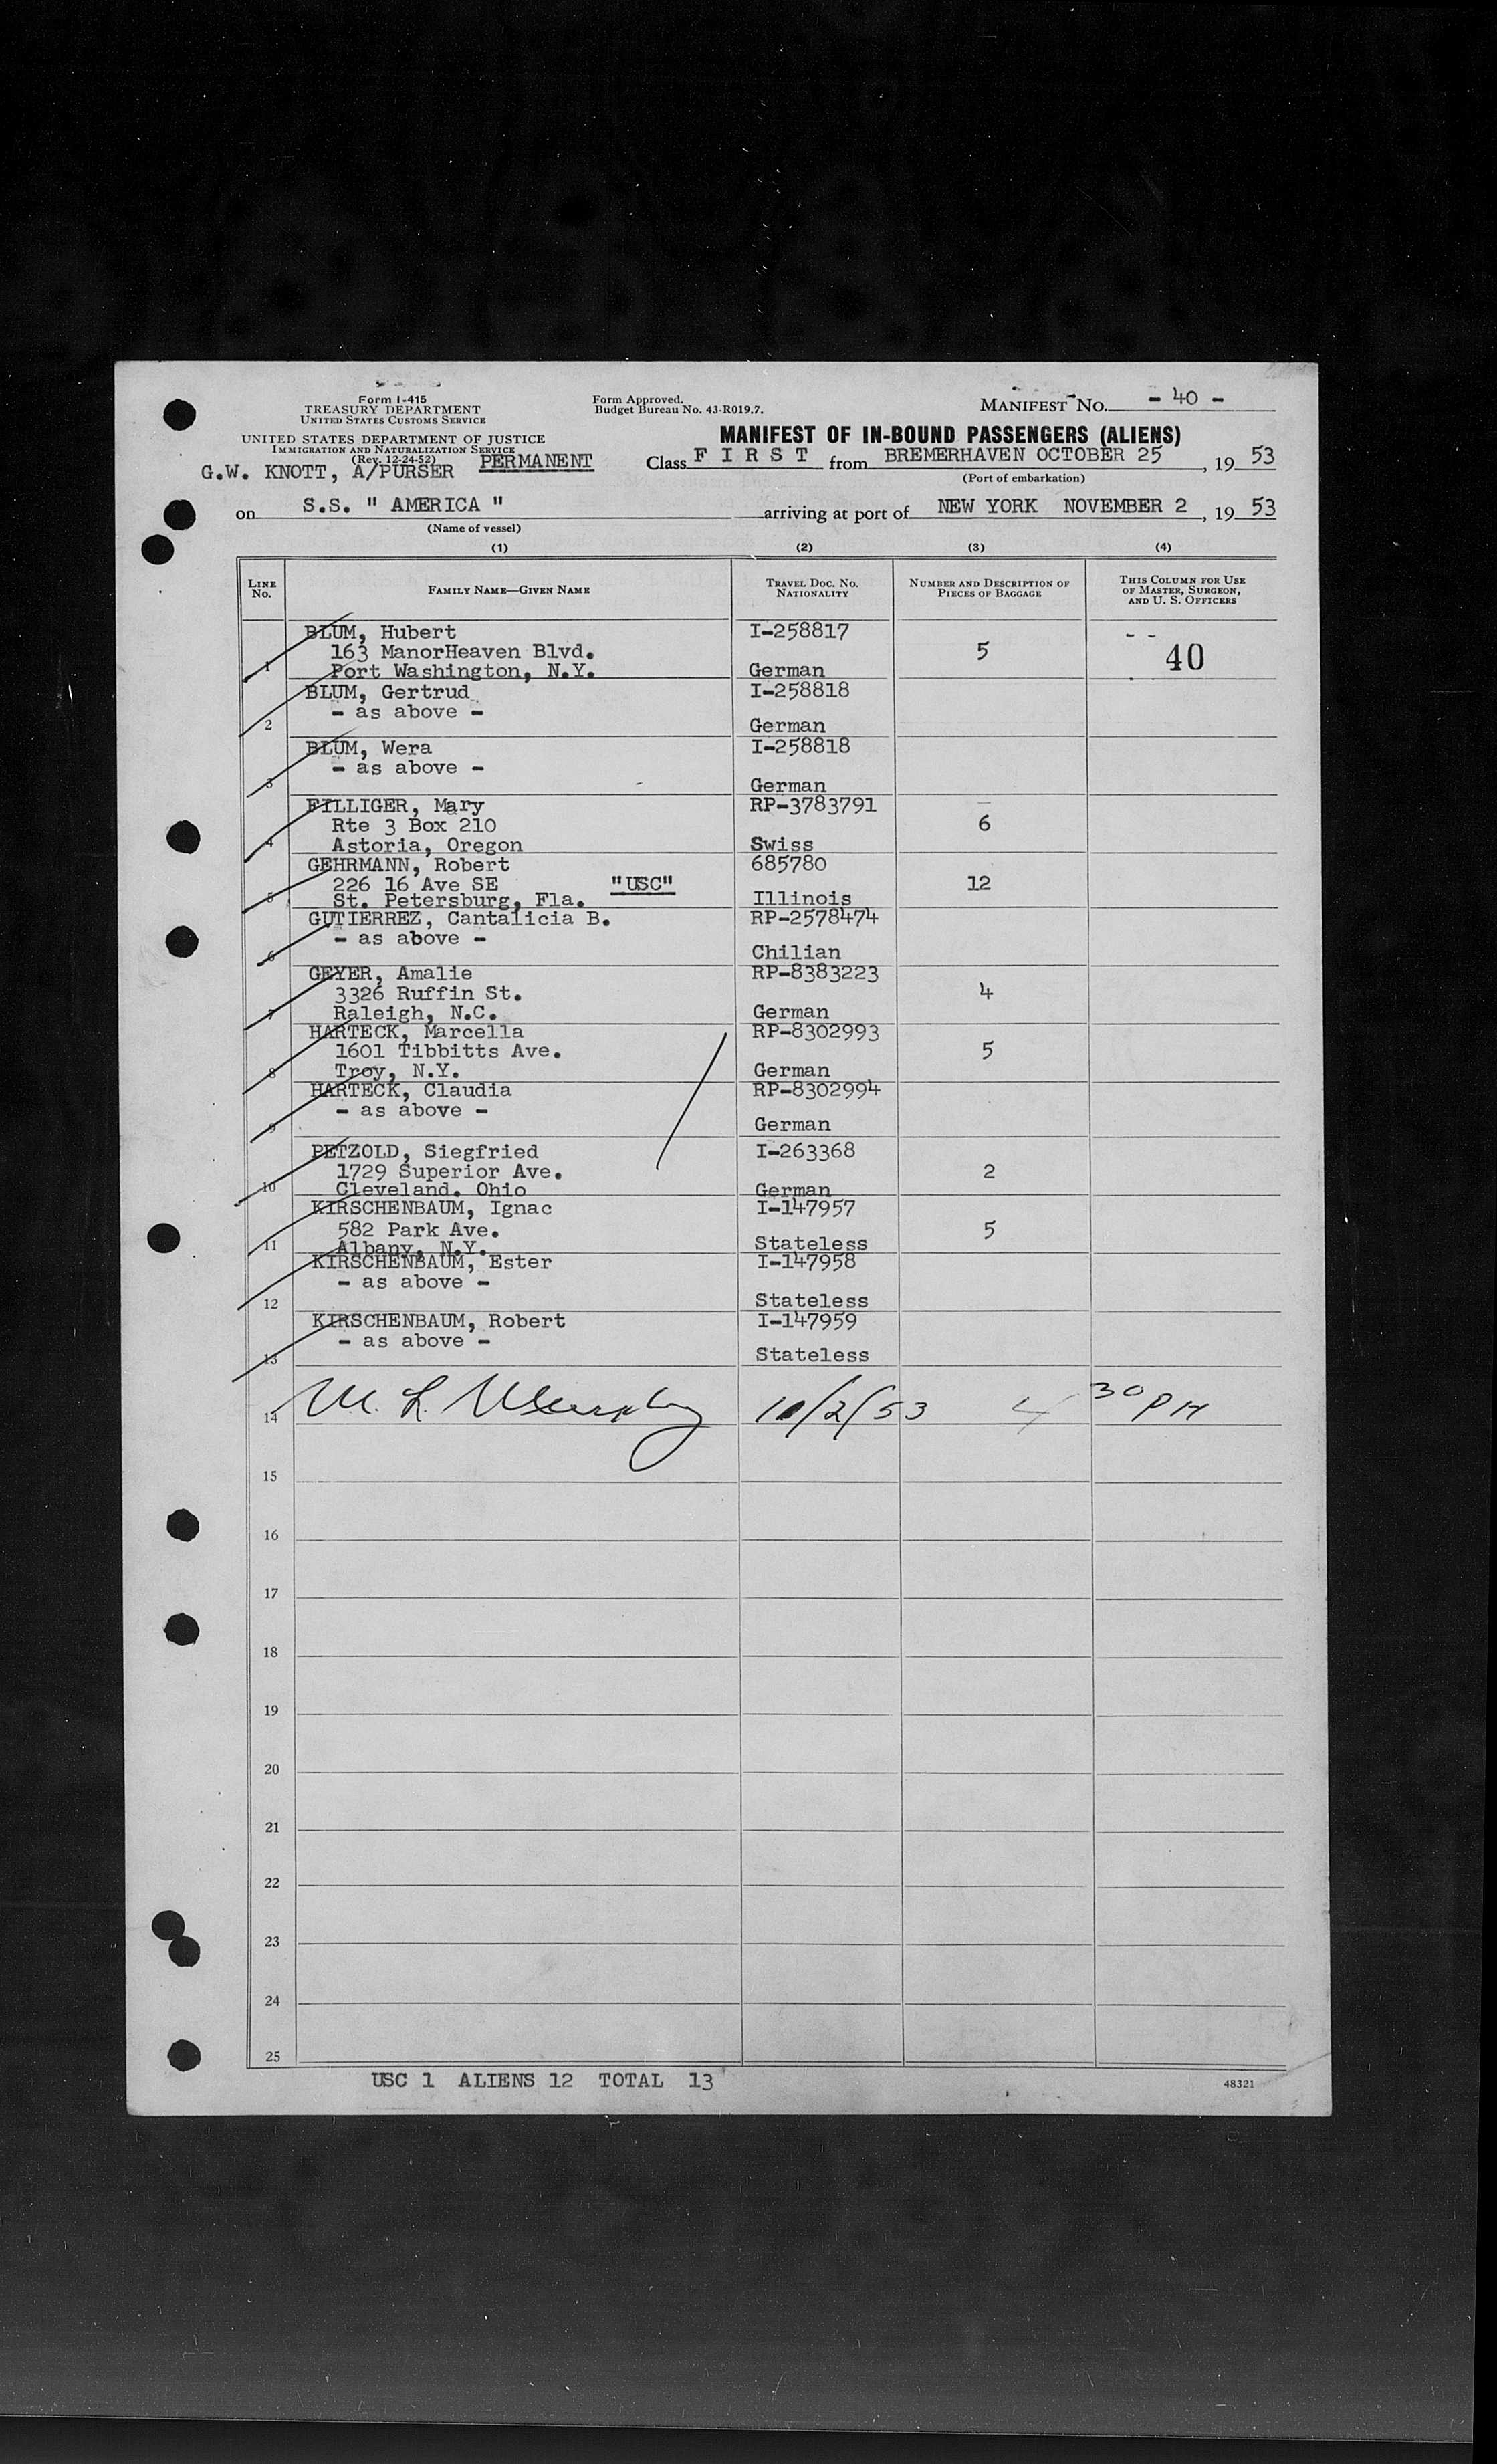 Form I-415
TREASURY DEPARTMENT
UNITED STATES CUSTOMS SERVICE
UNITED STATES DEPARTMENT OF JUSTICE
IMMIGRATION AND NATURALIZATION SERVICE
(Rev. 12-24-52)
G.W. KNOTT, A/PURSER PERMANENT
Form Approved.
Budget Bureau No. 43-R019.7.
MANIFEST No. - 40 -
MANIFEST OF IN-BOUND PASSENGERS (ALIENS)
Class F I R S T from BREMERHAVEN OCTOBER 25, 19 53
(Port of embarkation)
on S.S. " AMERICA " arriving at port of NEW YORK NOVEMBER 2, 19 53
(Name of vessel)
(1) (2) (3) (4)
LINE No. FAMILY NAME—GIVEN NAME TRAVEL DOC. No. NATIONALITY NUMBER AND DESCRIPTION OF PIECES OF BAGGAGE THIS COLUMN FOR USE OF MASTER, SURGEON, AND U. S. OFFICERS
BLUM, Hubert I-258817 - -
163 ManorHeaven Blvd. 5 40
1 Port Washington, N.Y. German
BLUM, Gertrud I-258818
- as above -
2 German
BLUM, Wera I-258818
- as above -
3 German
FILLIGER, Mary RP-3783791
Rte 3 Box 210 6
4 Astoria, Oregon Swiss
GEHRMANN, Robert 685780
226 16 Ave SE "USC" 12
5 St. Petersburg, Fla. Illinois
GUTIERREZ, Cantalicia B. RP-2578474
- as above -
6 Chilian
GEYER, Amalie RP-8383223
3326 Ruffin St. 4
7 Raleigh, N.C. German
HARTECK, Marcella RP-8302993
1601 Tibbitts Ave. 5
8 Troy, N.Y. German
HARTECK, Claudia RP-8302994
- as above -
9 German
PETZOLD, Siegfried I-263368
1729 Superior Ave. 2
10 Cleveland. Ohio German
KIRSCHENBAUM, Ignac I-147957
582 Park Ave. 5
11 Albany, N.Y. Stateless
KIRSCHENBAUM, Ester I-147958
- as above -
12 Stateless
KIRSCHENBAUM, Robert I-147959
- as above -
13 Stateless
14 M. L. Murphy 11/2/53 4 30 PM
15
16
17
18
19
20
21
22
23
24
25
USC 1 ALIENS 12 TOTAL 13
48321